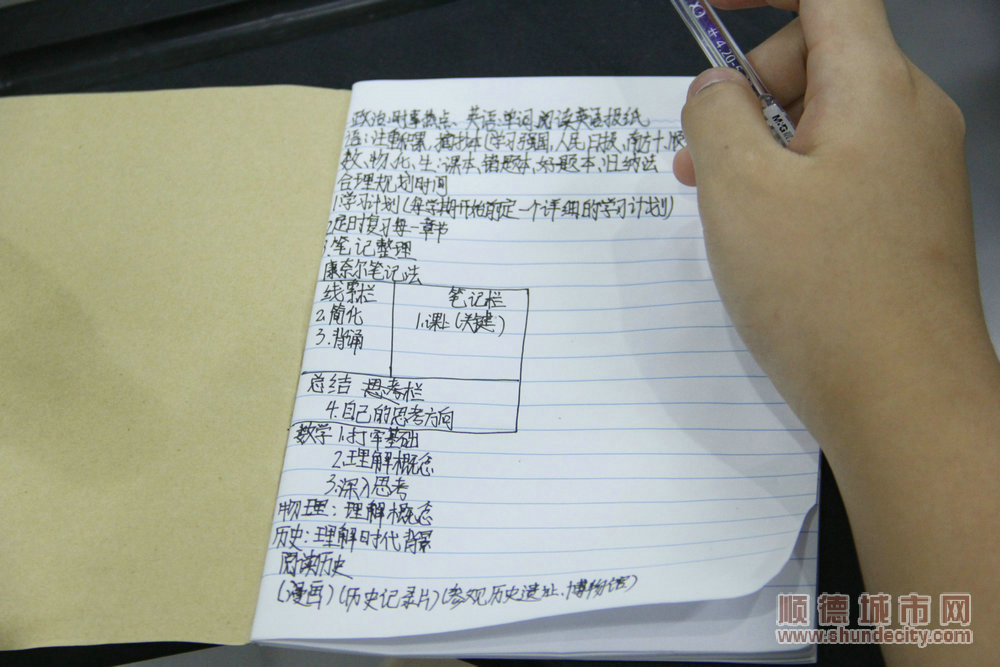 政治:时事热点、英语:单词,阅读英语报纸
语:注重积累,摘抄本(学习强国,人民日报,南方十
数、物、化、生:课本、错题本、好题本、归纳法
合理规划时间
1.学习计划(每学期开始前定一个详细的学习计划)
2.定时复习每一章节
3.笔记整理
康奈尔笔记法
线索栏 笔记栏
2.简化 1.课上(关键)
3.背诵
总结 思考栏
4.自己的思考方向
数学 1.打牢基础
2.理解概念
3.深入思考
物理:理解概念
历史:理解时代背景
阅读历史
(漫画)(历史记录片)(参观历史遗址、博物馆)
M&G
顺德城市网
www.shundecity.com